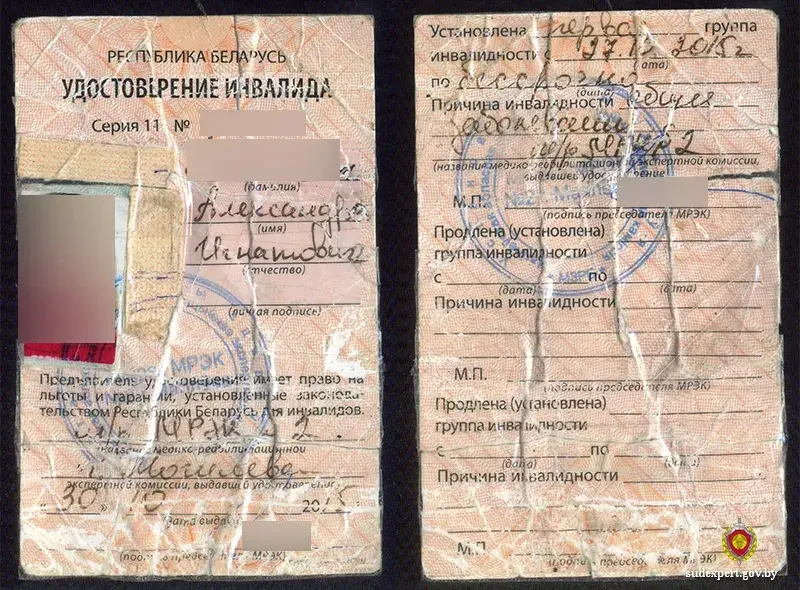 РЕСПУБЛИКА БЕЛАРУСЬ
УДОСТОВЕРЕНИЕ ИНВАЛИДА
Серия 11 №
(фамилия)
Александр
(имя)
Игнатович
(отчество)
(личная подпись)
МРЭК
Предъявитель удостоверения имеет право на
льготы и гарантии, установленные законода-
тельством Республики Беларусь для инвалидов.
МРЭК 2
название медико-реабилитационной
г. Могилева
экспертной комиссии, выдавшей удостоверение
"30" 10 2015
(дата выдачи)
(подпись председателя МРЭК)
Установлена первая группа
инвалидности с 2015г
(дата)
по бессрочно
(дата)
Причина инвалидности общее
заболевание
МРЭК 2
(название медико-реабилитационной экспертной комиссии,
выдавшей удостоверение
М.П.
(подпись председателя МРЭК)
Продлена (установлена)
группа инвалидности
с по
(дата) (дата)
Причина инвалидности
М.П.
(подпись председателя МРЭК)
Продлена (установлена)
группа инвалидности
с по
(дата) (дата)
Причина инвалидности
М.П.
(подпись председателя МРЭК)
sudexpert.gov.by